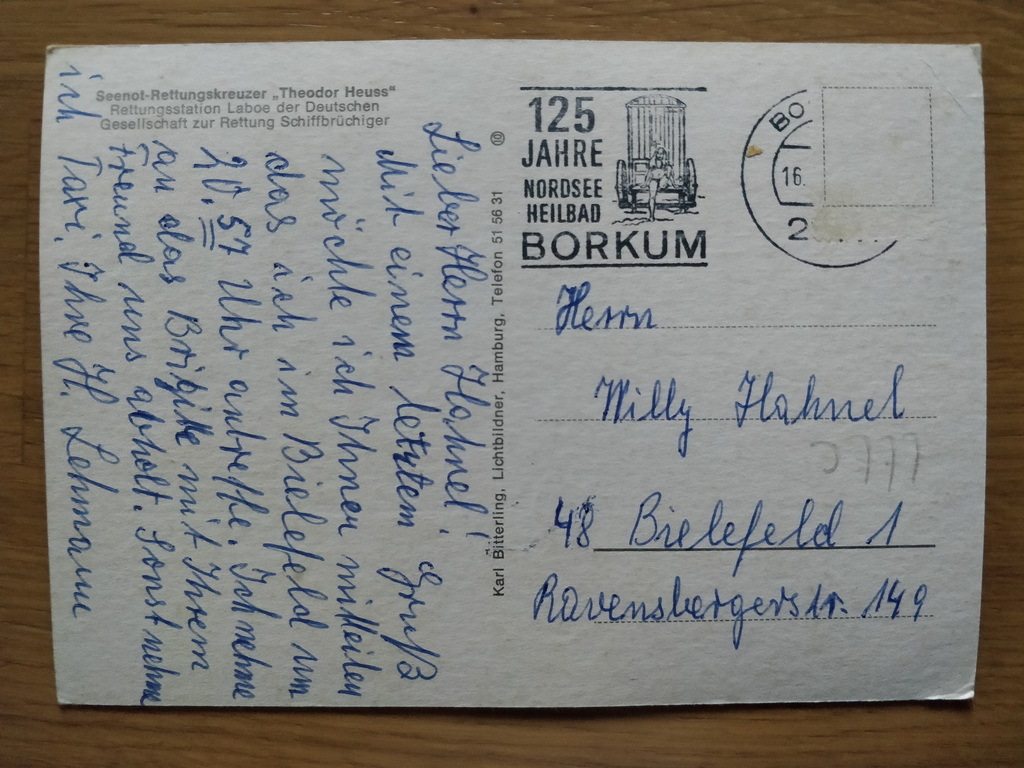 Seenot-Rettungskreuzer „Theodor Heuss"
Rettungsstation Laboe der Deutschen
Gesellschaft zur Rettung Schiffbrüchiger
Lieber Herr Hahnel!
Mit einem letzten Gruß
möchte ich Ihnen mitteilen
das ich in Bielefeld um
20.57 Uhr antreffe. Ich nehme
an das Brigitte mit Ihrem
Freund uns abholt. Sonst nehme
ich Taxi. Ihre H. Lehmann
Karl Bitterling, Lichtbildner, Hamburg, Telefon 51 56 31
125
JAHRE
NORDSEE
HEILBAD
BORKUM
BO
16.
2
Herrn
Willy Hahnel
48 Bielefeld 1
Ravensbergerstr. 149